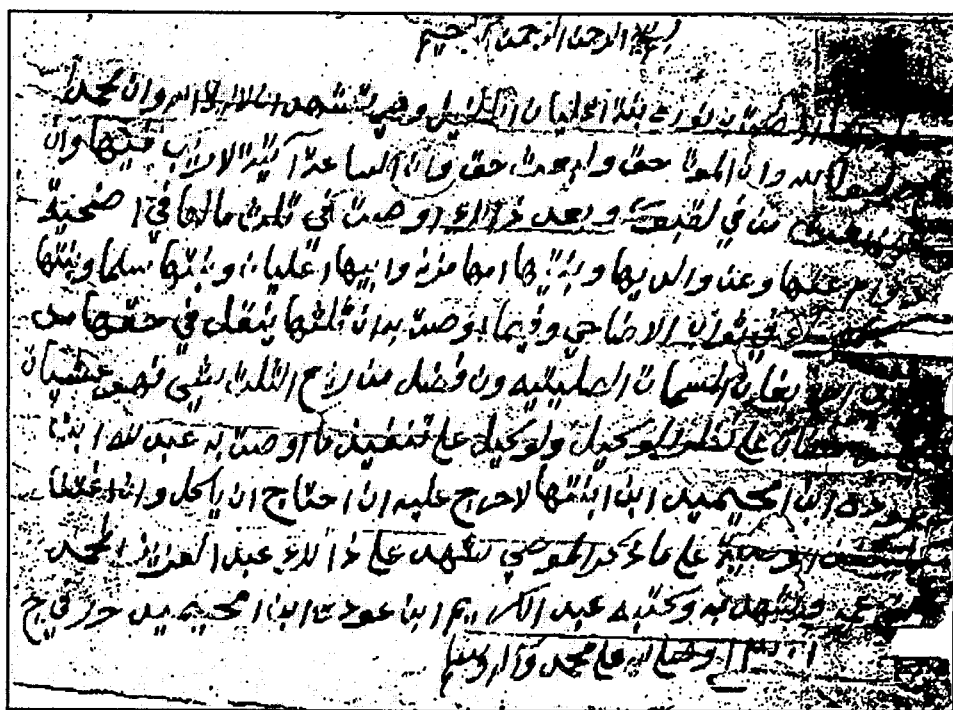 بسم الله الرحمن الرحيم
أوصت به نورة بنت اعليان وهي تشهد ان لا اله الا الله وان محمد
رسول الله وان الموت حق والبعث حق وان الساعة آتية لا ريب فيها وان
الله يبعث من في القبور وبعد ذالك اوصت في ثلث مالها في اضحية
عنها وعن والديها وبنتها امها مزنه وابيها اعليان وبنتها سلما وبنتها
في ثواب الاضاحي وفيما اوصت به ان ثلثها ينقل في حقها من
الصليبيه ون فضل من ريع الثلث شي فهو
على نظر الوكيل ولوكيل على تنفيذ ما اوصت به عبد لله ابن
عودة ابن امحيميد ابن ابنتها لا حرج عليه ان احتاج ان ياكل وان
الوصية على ما ذكر الموصي شهد على ذالك عبد العزيز المحمد
وشهد به وكتبه عبد الكريم ابن عودة ابن امحيميد حرر في ج
وصلى الله على محمد وآله وسلم